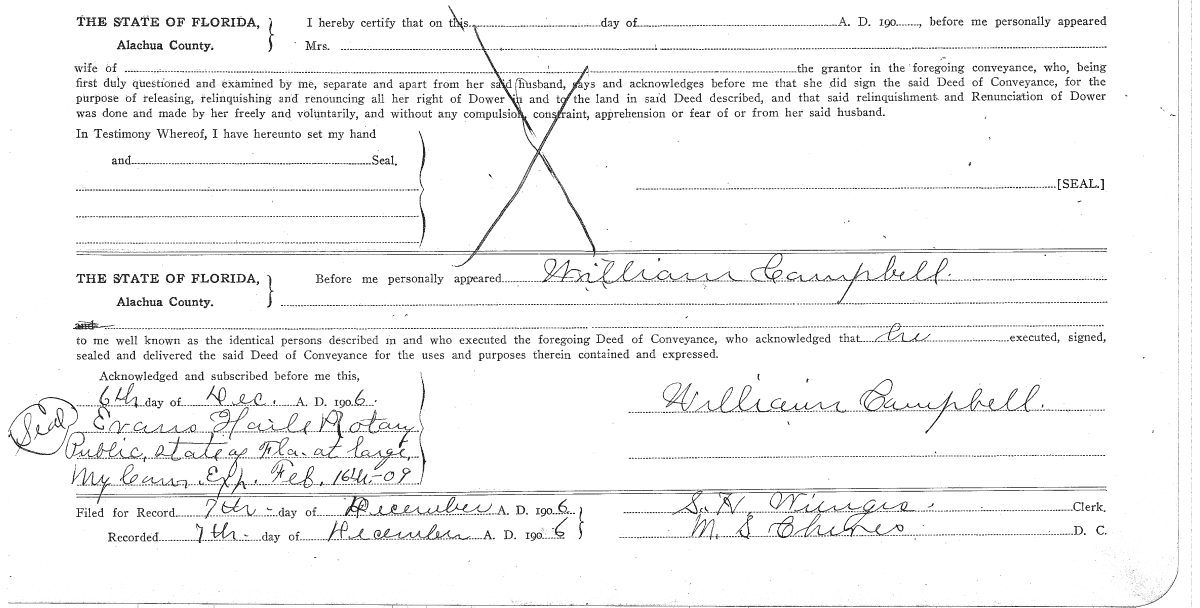 THE STATE OF FLORIDA, } I hereby certify that on this day of A. D. 190 , before me personally appeared
Alachua County. Mrs.
wife of the grantor in the foregoing conveyance, who, being
first duly questioned and examined by me, separate and apart from her said husband, says and acknowledges before me that she did sign the said Deed of Conveyance, for the
purpose of releasing, relinquishing and renouncing all her right of Dower in and to the land in said Deed described, and that said relinquishment and Renunciation of Dower
was done and made by her freely and voluntarily, and without any compulsion, constraint, apprehension or fear of or from her said husband.
In Testimony Whereof, I have hereunto set my hand
and Seal.
[SEAL.]
THE STATE OF FLORIDA, } Before me personally appeared William Campbell.
Alachua County.
and
to me well known as the identical persons described in and who executed the foregoing Deed of Conveyance, who acknowledged that he executed, signed,
sealed and delivered the said Deed of Conveyance for the uses and purposes therein contained and expressed.
Acknowledged and subscribed before me this,
6th day of Dec. A. D. 1906. William Campbell.
(Seal) Evans Haile Notary
Public, state of Fla. at large,
My Com. Exp. Feb. 16th-09
Filed for Record 7th - day of December A. D. 1906 } S. H. Wienges. Clerk.
Recorded 7th - day of December A. D. 1906 M. S. D. C.